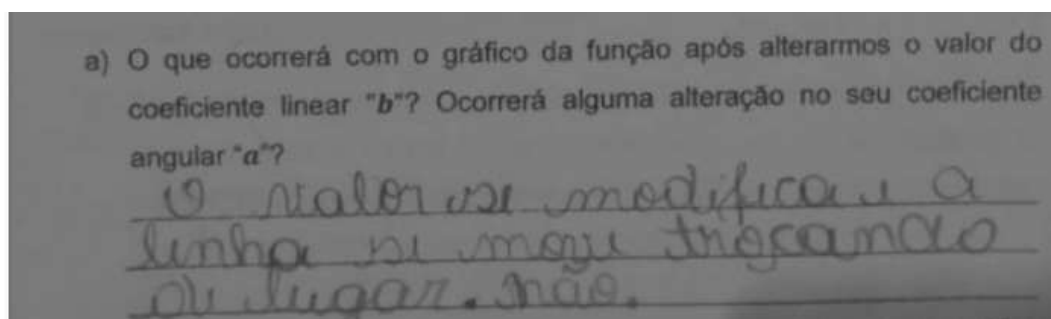 a) O que ocorrerá com o gráfico da função após alterarmos o valor do
coeficiente linear "b"? Ocorrerá alguma alteração no seu coeficiente
angular "a"?
O valor se modifica e a
linha se move trocando
de lugar. não.